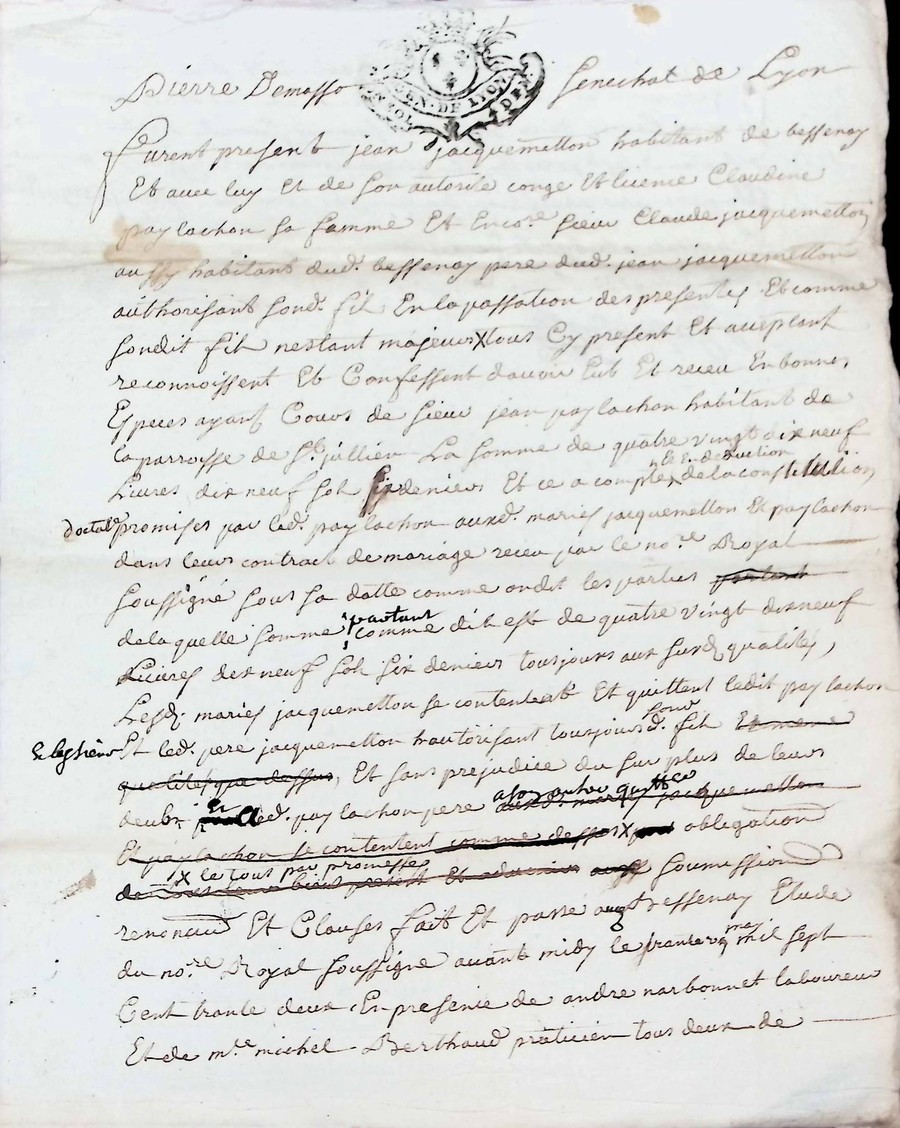 Pierre Demasso Senechal de Lyon
GEN. DE LYON
Furent present jean jacquemetton habitant de bessenay
Et avec luy Et de son autorité congé Et licence Claudine
paylachon sa famme Et Encore. sieur Claude jacquemetton
aussy habitant dud. bessenay pere dud. jean jacquemetton
authorisant sond. fil En la passation des presentes Et comme
sondit fil nestant majeur X tous Cy present Et acceptant
reconnoissent Et Confessent davoir Eub Et receu En bonnes
Especes ayant Cours de sieur jean paylachon habitant de
la parroisse de St. jullien La somme de quatre vingt dix neuf
Livres dix neuf sols six deniers Et ce a compte Et En deduction de la constitution
doctale promises par led. paylachon auxd. mariés jacquemetton Et paylachon
dans leurs contract de mariage receu par le nore. Royal
soussigné sous sa datte comme ondit les parties partant
de laquelle somme partant comme dit est de quatre vingt dix neuf
Livres dix neuf sols six deniers tousjours aux susd. qualités,
Lesd. mariés jacquemetton se contentent Et quittent ledit paylachon
Et les siens Et led. pere jacquemetton hautorisant tousjours sond. fil En meme
qualités que dessus, Et sans prejudice du surplus de leurs
deubt Et a led. paylachon pere a son autre quittce auxd. mariés jacquemetton
Et paylachon se contentent comme dessus X obligation
X le tous par promesses
de tous leurs biens present Et advenir soumission
renonciaōn Et Clauses fait Et passé aud. bessenay Etude
du nore. Royal soussigné avant midy le trante may mil sept
Cent trante deux En presence de andré narbonnet laboureur
Et de mtre michel Berthaud praticien tous deux de